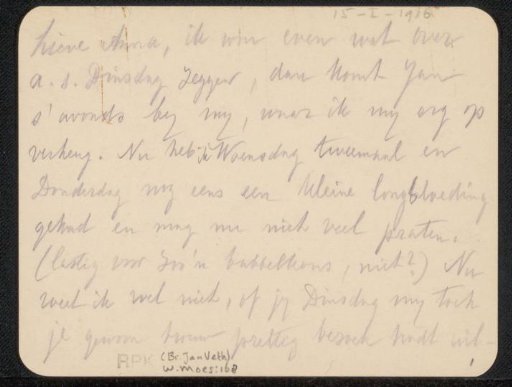 15-I-1916
Lieve Anna, ik wou even wat over
a. s. Dinsdag zeggen, dan komt Jan
s'avonds by my, waar ik my erg op
verheug. Nu heb ik Woensdag tweemaal en
Donderdag nog eens een kleine longbloeding
gehad en mag nu niet veel praten.
(lastig voor zoo'n babbelkous, niet?) Nu
weet ik wel niet, of jy Dinsdag my toch
je gewoon trouw prettig bezoek hadt
RPK (Br. Jan Veth)
W. Moes: 168